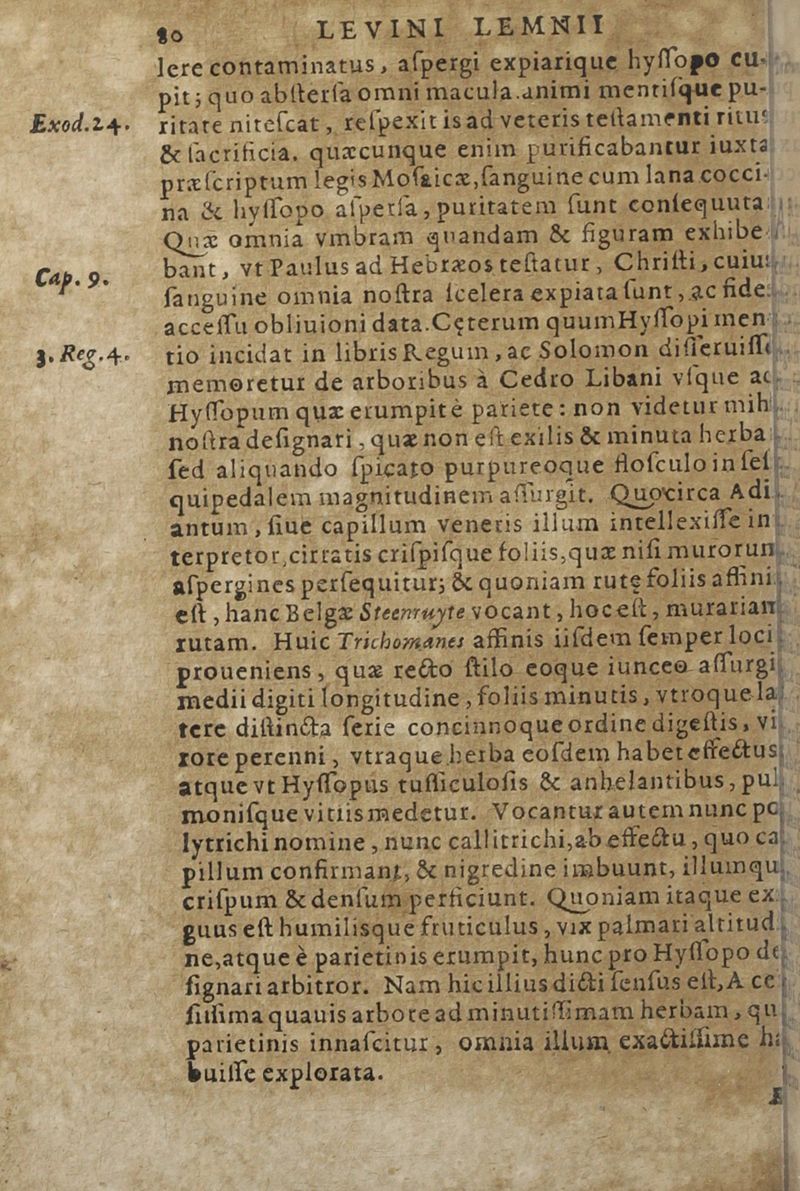 80 LEVINI LEMNII
lere contaminatus, aſpergi expiarique hyſſopo cu-
pit; quo abſterſa omni macula animi mentiſque pu-
Exod.24. ritate niteſcat, reſpexit is ad veteris teſtamenti ritus
& ſacrificia. quæcunque enim purificabantur iuxta
præſcriptum legis Moſaicæ, ſanguine cum lana cocci-
na & hyſſopo aſperſa, puritatem ſunt conſequuta:
Quæ omnia vmbram quandam & figuram exhibe-
Cap. 9. bant, vt Paulus ad Hebræos teſtatur, Chriſti, cuius
ſanguine omnia noſtra ſcelera expiata ſunt, ac fidei
acceſſu obliuioni data. Ceterum quum Hyſſopi men
3. Reg.4. tio incidat in libris Regum, ac Solomon diſſeruiſſe
memoretur de arboribus à Cedro Libani vſque ad
Hyſſopum quæ erumpit è pariete: non videtur mihi
noſtra deſignari, quæ non eſt exilis & minuta herba
ſed aliquando ſpicato purpureoque floſculo in ſeſ
quipedalem magnitudinem aſſurgit. Quocirca Adi
antum, ſiue capillum veneris illum intellexiſſe in
terpretor, cirratis criſpiſque foliis, quæ niſi murorum
aſpergines perſequitur; & quoniam rutę foliis affini
eſt, hanc Belgæ Steenruyte vocant, hoc eſt, murariam
rutam. Huic Trichomanes affinis iiſdem ſemper loci
proueniens, quæ recto ſtilo eoque iunceo aſſurgi
medii digiti longitudine, foliis minutis, vtroque la
tere diſtincta ſerie concinnoque ordine digeſtis, vi
rore perenni, vtraque herba eoſdem habet effectus
atque vt Hyſſopus tuſſiculoſis & anhelantibus, pul
moniſque vitiis medetur. Vocantur autem nunc po
lytrichi nomine, nunc callitrichi, ab effectu, quo ca
pillum confirmant, & nigredine imbuunt, illumqu
criſpum & denſum perficiunt. Quoniam itaque ex
guus eſt humilisque fruticulus, vix palmari altitud
ne, atque è parietinis erumpit, hunc pro Hyſſopo de
ſignari arbitror. Nam hic illius dicti ſenſus eſt, A ce
ſiſſima quauis arbore ad minutiſſimam herbam, qu
parietinis innaſcitur, omnia illum exactiſſime ha
buiſſe explorata.